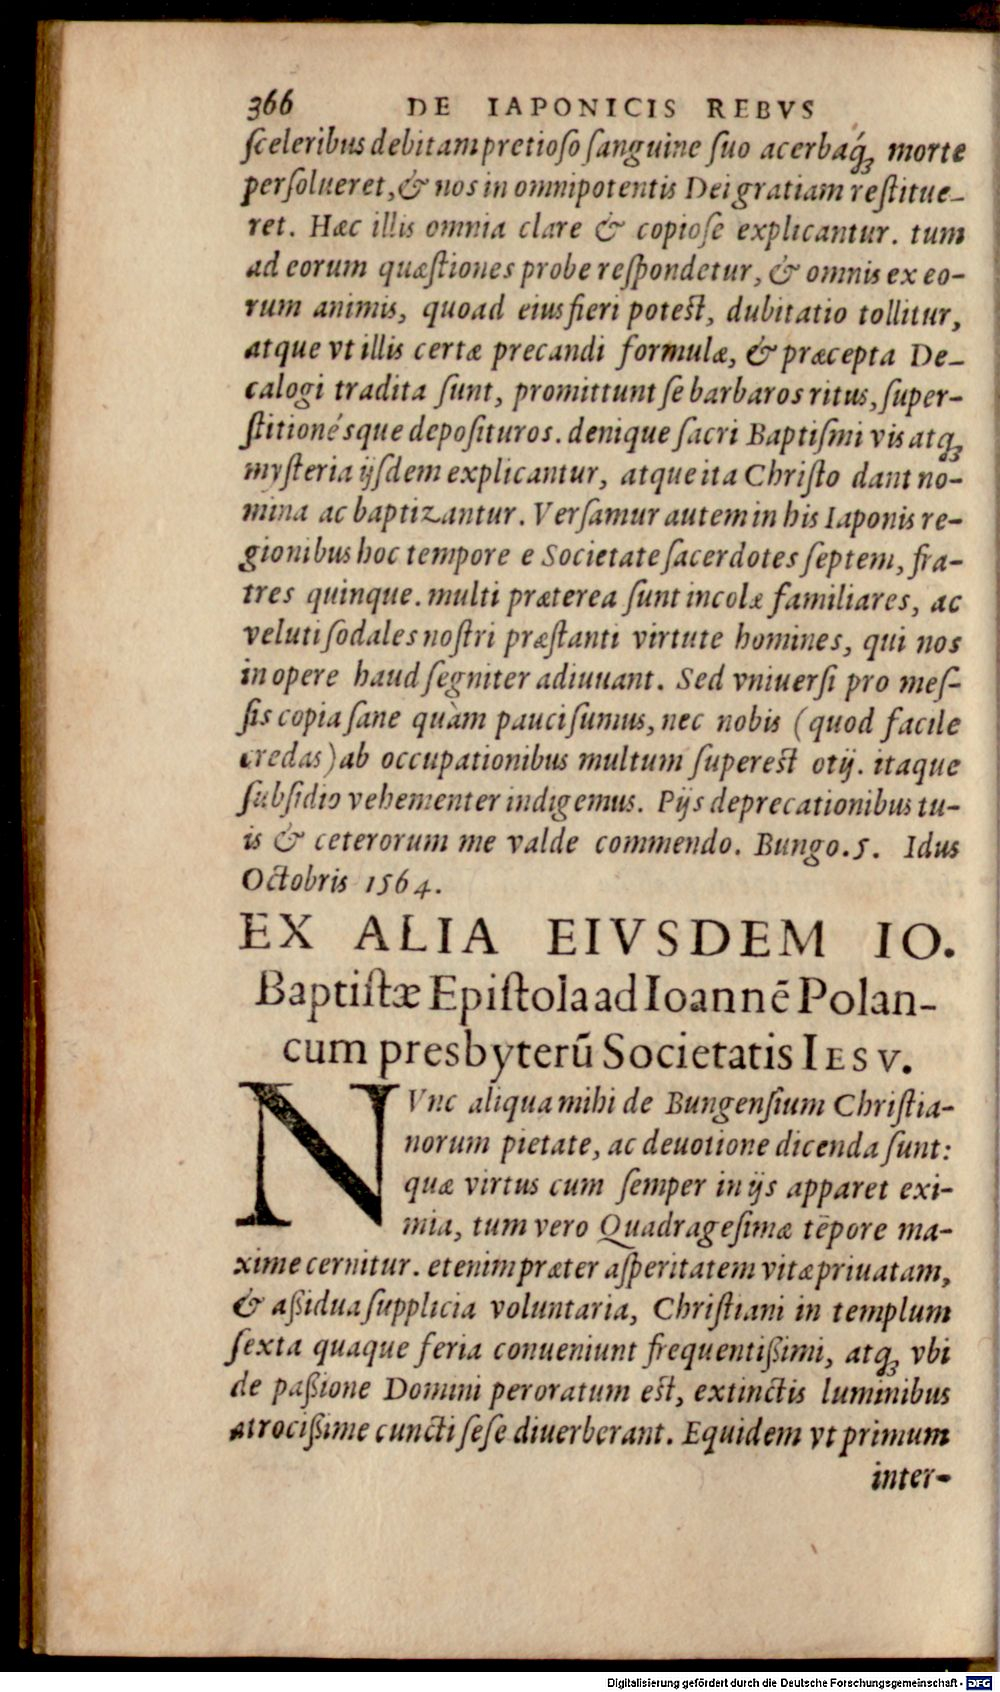 366 DE IAPONICIS REBVS
ſceleribus debitam pretioſo ſanguine ſuo acerbaq́ꝫ morte
perſolueret, & nos in omnipotentis Dei gratiam reſtitue-
ret. Hæc illis omnia clare & copioſe explicantur. tum
ad eorum quæſtiones probe reſpondetur, & omnis ex eo-
rum animis, quoad eius fieri poteſt, dubitatio tollitur,
atque vt illis certæ precandi formulæ, & præcepta De-
calogi tradita ſunt, promittunt ſe barbaros ritus, ſuper-
ſtitionésque depoſituros. denique ſacri Baptiſmi vis atqꝫ
myſteria ijſdem explicantur, atque ita Chriſto dant no-
mina ac baptizantur. Verſamur autem in his Iaponis re-
gionibus hoc tempore e Societate ſacerdotes ſeptem, fra-
tres quinque. multi præterea ſunt incolæ familiares, ac
veluti ſodales noſtri præſtanti virtute homines, qui nos
in opere haud ſegniter adiuuant. Sed vniuerſi pro meſ-
ſis copia ſane quàm pauci ſumus, nec nobis (quod facile
credas) ab occupationibus multum ſupereſt otij. itaque
ſubſidio vehementer indigemus. Pijs deprecationibus tu-
is & ceterorum me valde commendo. Bungo. 5. Idus
Octobris 1564.
EX ALIA EIVSDEM IO.
Baptiſtæ Epiſtola ad Ioannē Polan-
cum presbyterū Societatis IESV.
NVnc aliqua mihi de Bungenſium Chriſtia-
norum pietate, ac deuotione dicenda ſunt:
quæ virtus cum ſemper in ijs apparet exi-
mia, tum vero Quadrageſimæ tēpore ma-
xime cernitur. etenim præter aſperitatem vitæ priuatam,
& aßidua ſupplicia voluntaria, Chriſtiani in templum
ſexta quaque feria conueniunt frequentißimi, atqꝫ vbi
de paßione Domini peroratum eſt, extinctis luminibus
atrocißime cuncti ſeſe diuerberant. Equidem vt primum
inter-
Digitalisierung gefördert durch die Deutsche Forschungsgemeinschaft - DFG